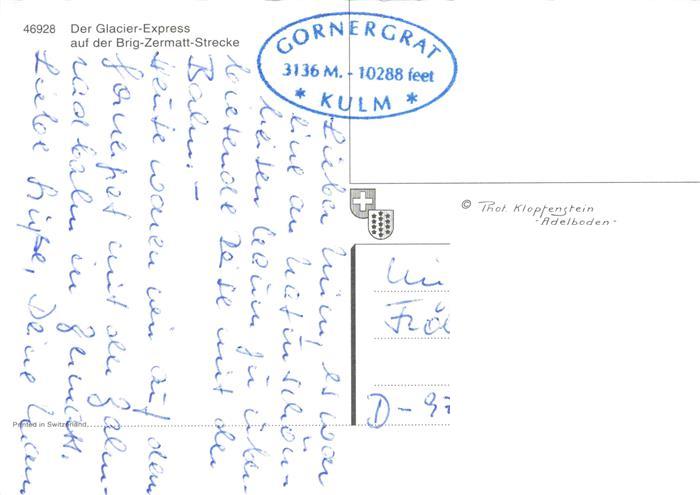 46928 Der Glacier-Express
auf der Brig-Zermatt-Strecke
GORNERGRAT
3136 M. - 10288 feet
* KULM *
Lieber es war
eine an Naturschön-
heiten kaum zu über-
bietende Reise mit der
Bahn. –
Heute waren wir auf dem
Gornergrat mit der Zahn-
radbahn in Zermatt.
Liebe Grüße, Deine
© Phot. Klopfenstein
- Adelboden -
D -
Printed in Switzerland